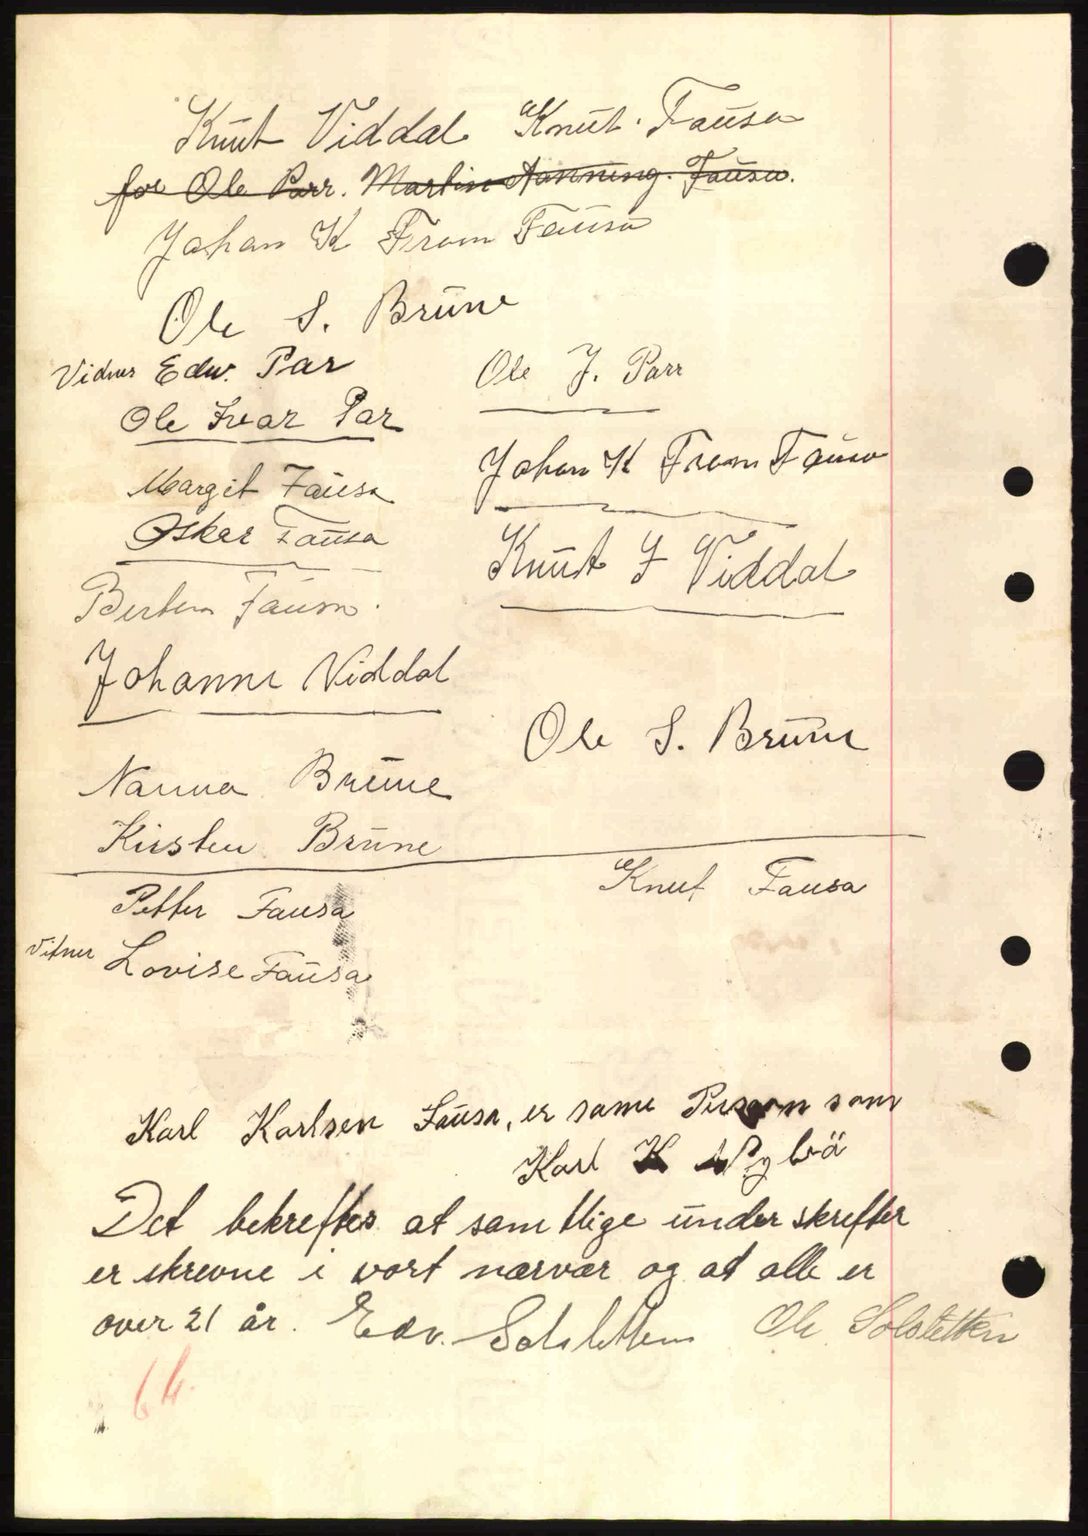 Knut Viddal Knut Fausa
for Ole Parr. Martin Fausa.
Johan K From Fausa
Ole S. Brüne
Vidner Edw. Par
Ole J. Parr
Ole Ivar Par
Johan K From Fausa
Margit Fausa
Oskar Fausa
Knut J Viddal
Fausa.
Johanne Viddal
Ole S. Brüne
Nanna Brüne
Kirsten Brüne
Knut Fausa
Petter Fausa
Vitner Lovise Fausa
Karl Karlsen Fausa, er same Person som
Karl K Nylvä
Det bekreftes at samtlige underskrefter
er skrevne i vort nærvær og at alle er
over 21 år. Edv. Solsletten Ole Solsletten
64